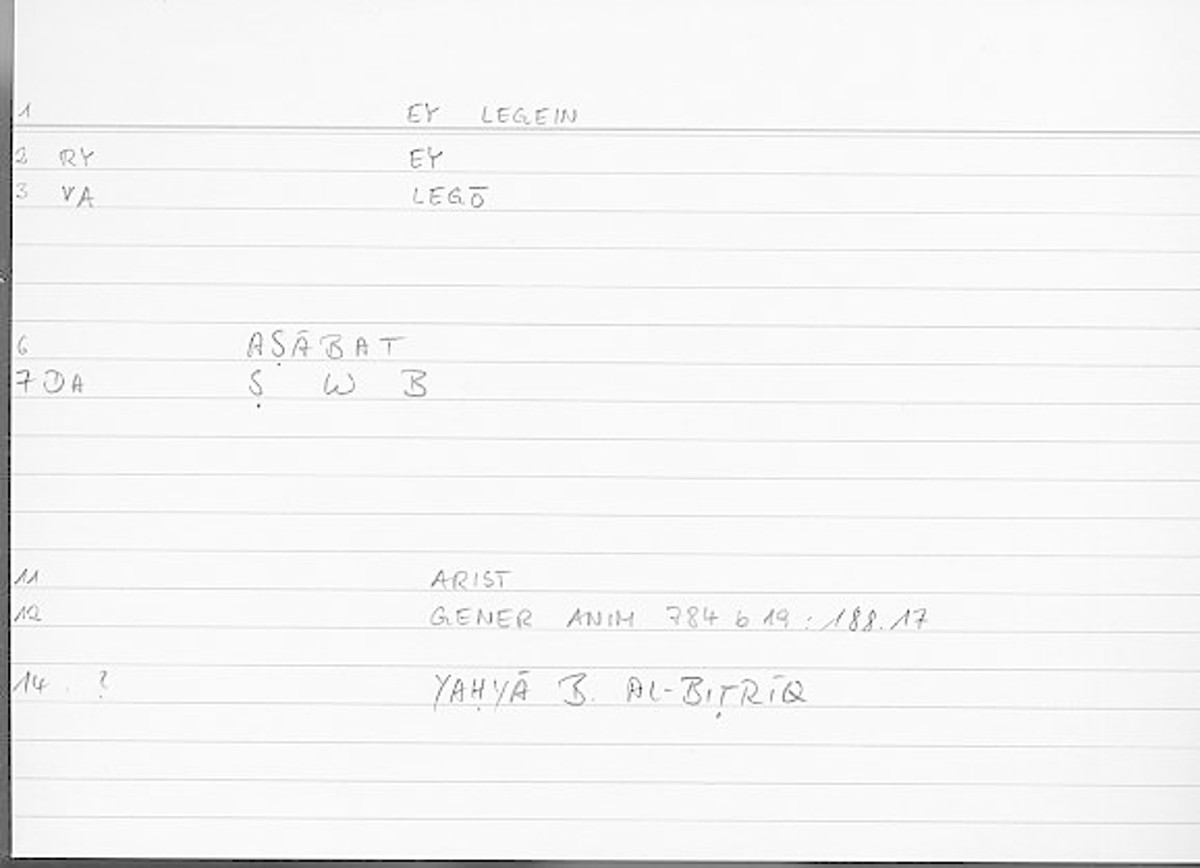 1 EY LEGEIN
2 RY EY
3 VA LEGŌ
6 AṢĀBAT
7 DA Ṣ W B
11 ARIST
12 GENER ANIM 784 b 19 : 188.17
14 . ? YAḤYĀ B. AL-BIṬRĪQ